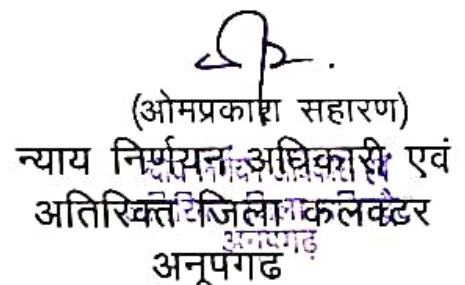 (ओमप्रकाश सहारण)
न्याय निर्णयन अधिकारी एवं
अतिरिक्त जिला कलक्टर
अनूपगढ